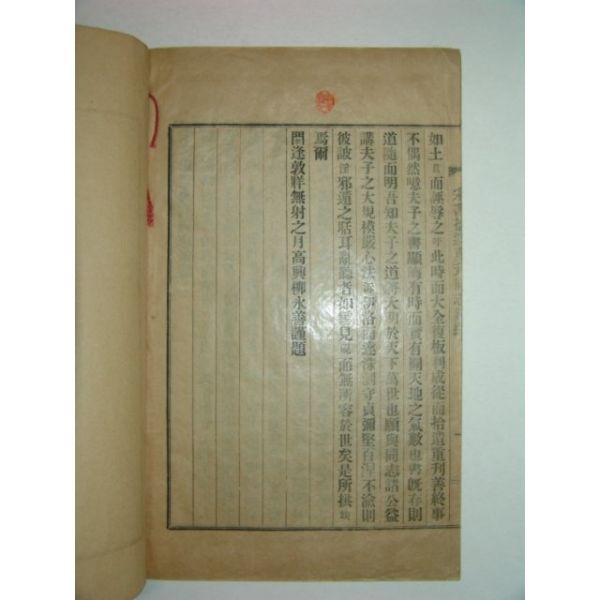 如土 而誣辱之 此時而大全復板刊成從而拾遺重刊善終事
不偶然噫夫子之書顯晦有時而實有關天地之氣數也書旣存則
道隨而明吾知夫子之道將大明於天下萬世也願與同志諸公益
講夫子之大規模嚴心法 洛而 守貞彌堅百涅不渝則
彼詖 邪遁之聒耳亂聽者如 見 而無所容於世矣是所拱
焉爾
閼逢敦牂無射之月高興柳永善謹題